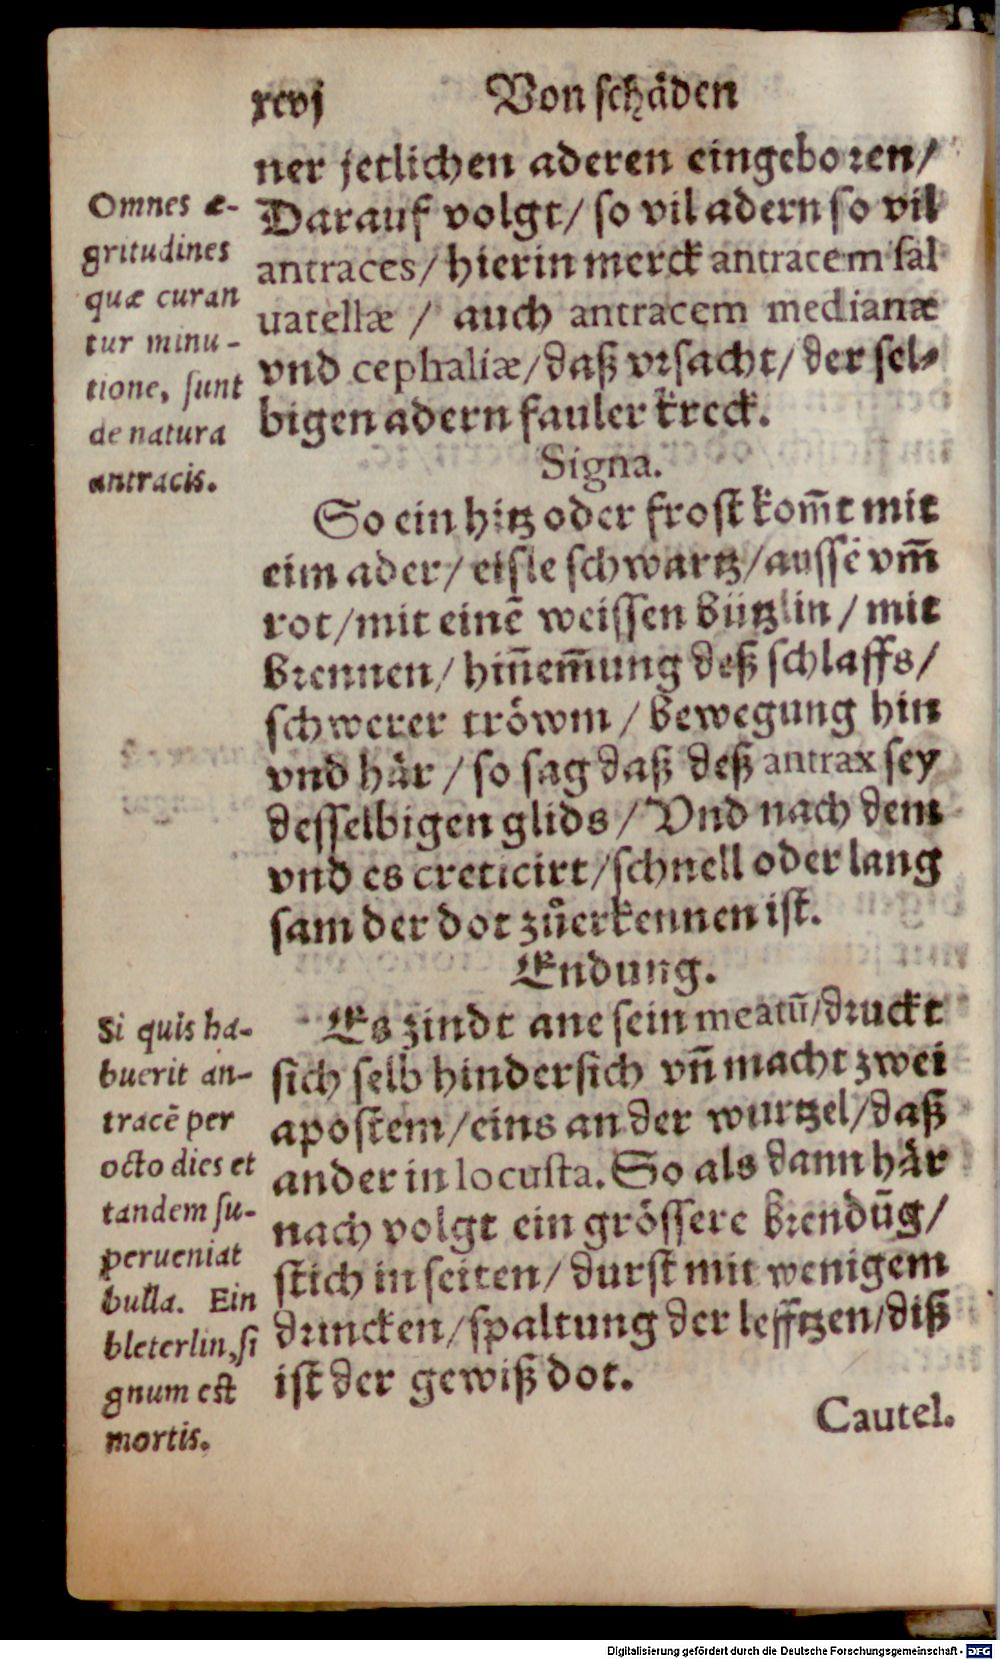 xcvj Von schäden
ner jetlichen aderen eingeboren/
Darauf volgt/ so vil adern so vil
antraces/ hierin merck antracem sal
uatellæ / auch antracem medianæ
vnd cephaliæ/daß vrsacht/ der sel⸗
bigen adern fauler kreck.
Signa.
So ein hitz oder frost kom̄t mit
eim ader/ eisle schwartz/aussē vm̄
rot/mit einē weissen bützlin / mit
brennen/ hin̄em̄ung deß schlaffs/
schwerer tröwm / bewegung hin
vnd här / so sag daß deß antrax sey
desselbigen glids / Vnd nach dem
vnd es creticirt/schnell oder lang
sam der dot zůerkennen ist.
Endung.
Es zindt ane sein meatū/druckt
sich selb hindersich vn̄ macht zwei
apostem/eins an der wurtzel/daß
ander in locusta. So als dann här
nach volgt ein grössere brendūg/
stich in seiten/ durst mit wenigem
drincken/spaltung der lefftzen/diß
ist der gewiß dot.
Cautel.
Omnes æ-
gritudines
quæ curan
tur minu-
tione, sunt
de natura
antracis.
Si quis ha-
buerit an-
tracē per
octo dies et
tandem su-
perueniat
bulla. Ein
bleterlin, si
gnum est
mortis.
Digitalisierung gefördert durch die Deutsche Forschungsgemeinschaft - DFG